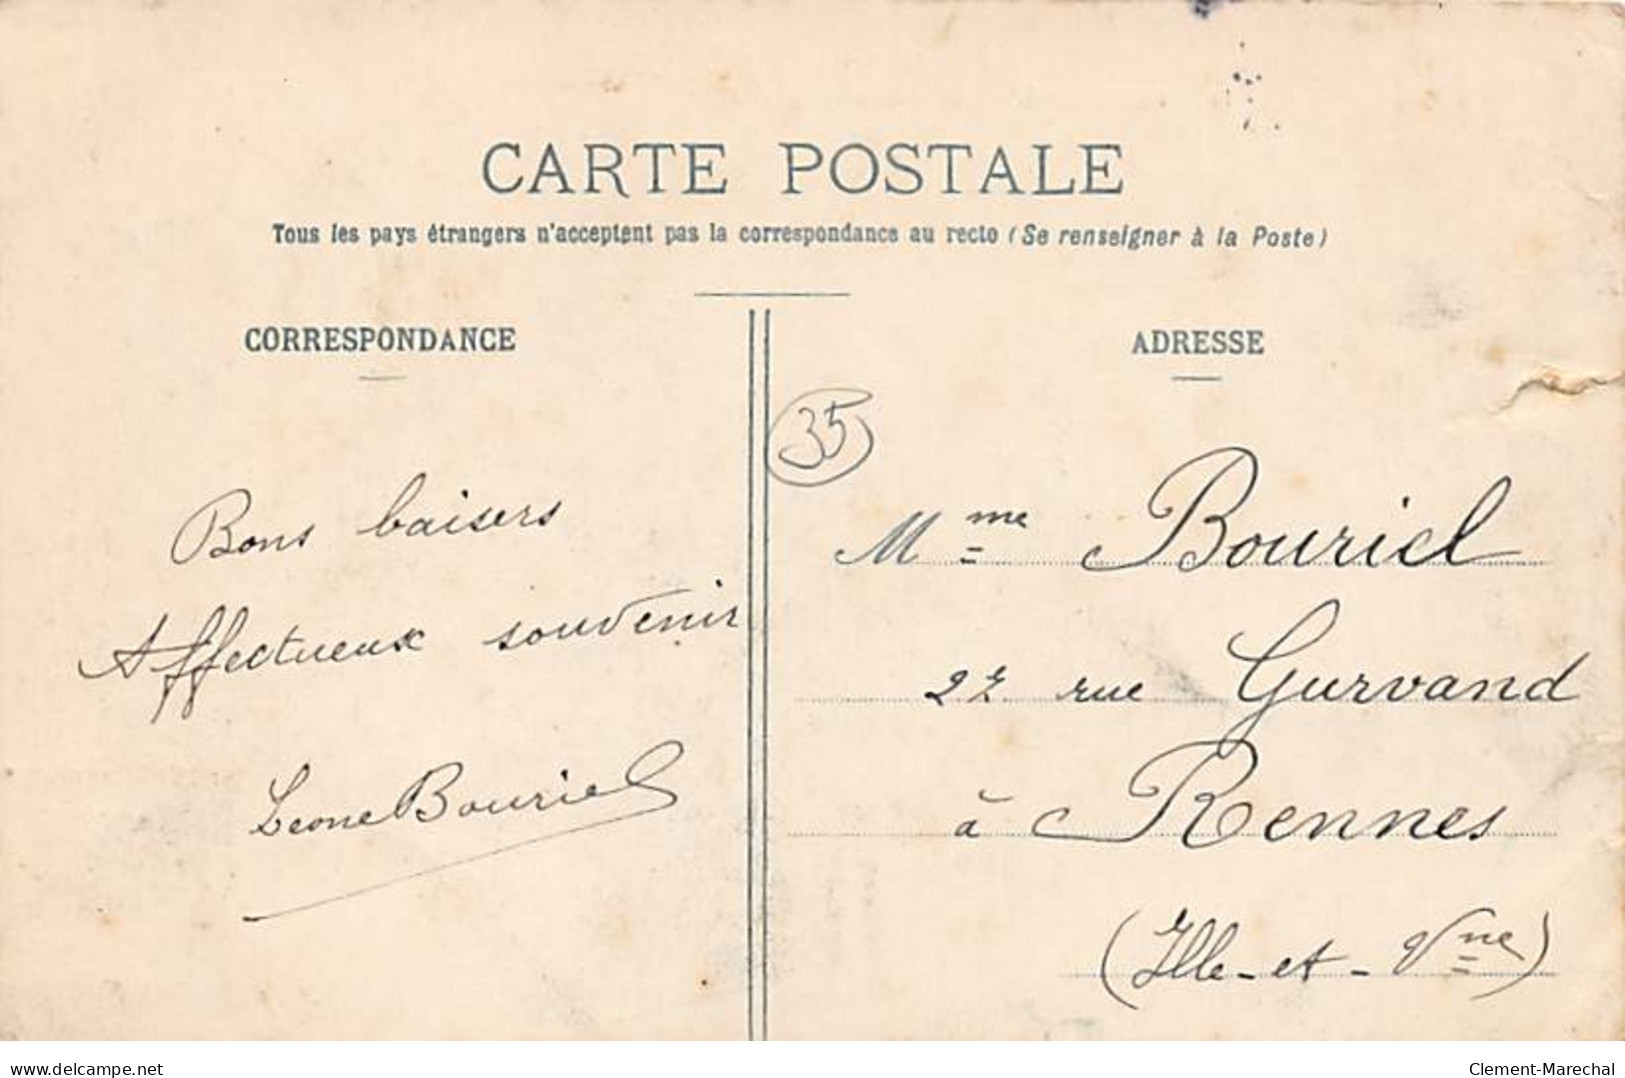 CARTE POSTALE
Tous les pays étrangers n'acceptent pas la correspondance au recto (Se renseigner à la Poste)
CORRESPONDANCE
Bons baisers
Affectueux souvenir
Leone Bouriel
ADRESSE
35
Mme Bouriel
27 rue Gurvand
à Rennes
(Ille-et-Vne)
delcampe.net
Clement-Marechal